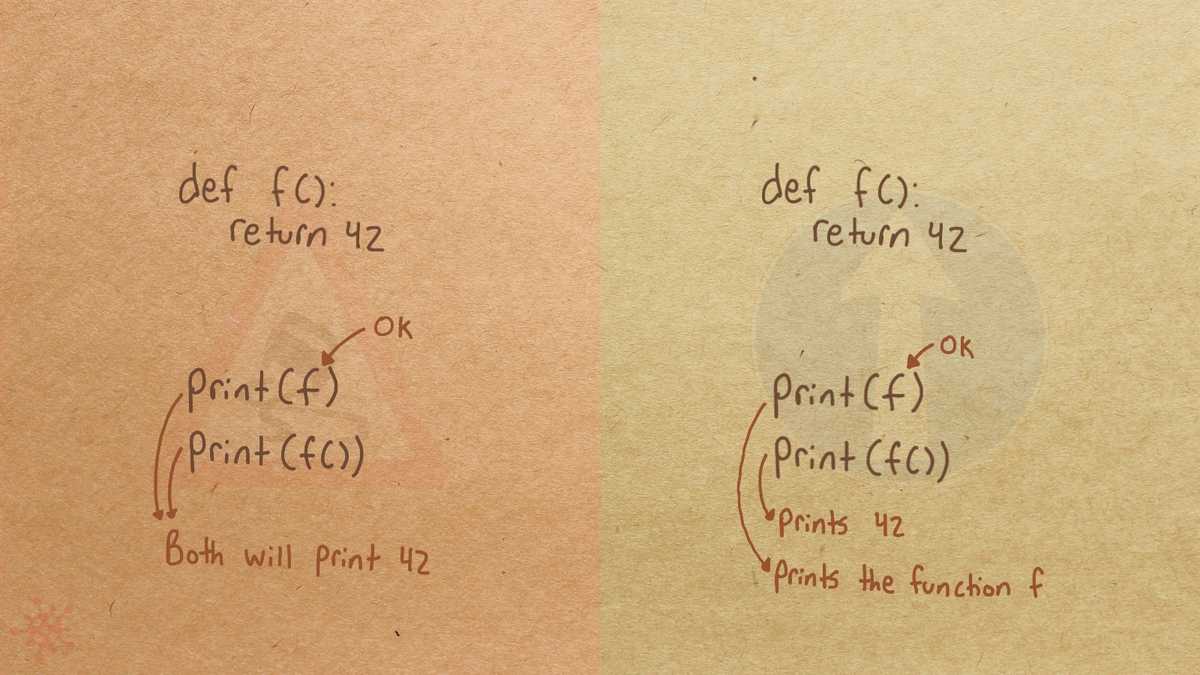 def f():
return 42
OK
print(f)
print(f())
Both will print 42
def f():
return 42
OK
print(f)
print(f())
Prints 42
Prints the function f